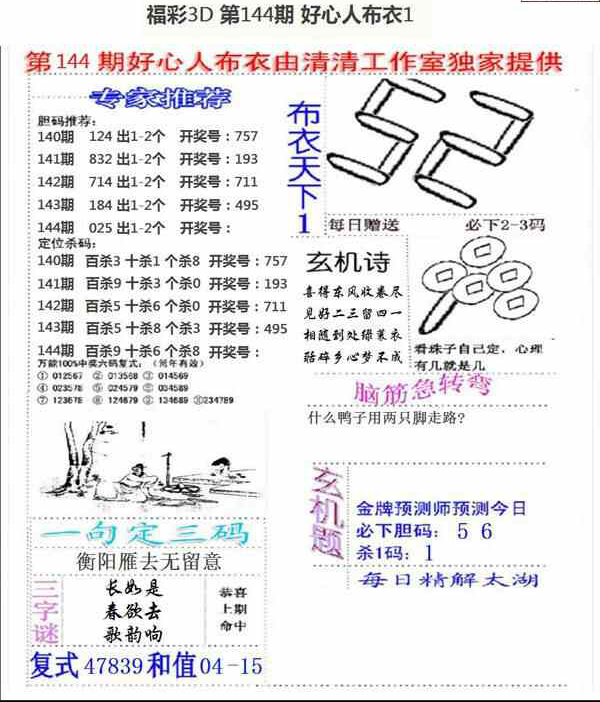 福彩3D 第144期 好心人布衣1
第144期好心人布衣由清清工作室独家提供
专家推荐
胆码推荐：
140期 124 出1-2个 开奖号：757
141期 832 出1-2个 开奖号：193
142期 714 出1-2个 开奖号：711
143期 184 出1-2个 开奖号：495
144期 025 出1-2个 开奖号：
定位杀码：
140期 百杀3 十杀1 个杀8 开奖号：757
141期 百杀9 十杀3 个杀0 开奖号：193
142期 百杀5 十杀6 个杀0 开奖号：711
143期 百杀5 十杀8 个杀3 开奖号：495
144期 百杀9 十杀6 个杀8 开奖号：
万能100%中奖六码复式：（常年有效）
① 012567 ② 013568 ③ 014569
④ 023578 ⑤ 024579 ⑥ 034589
⑦ 123678 ⑧ 124679 ⑨ 134689 ⑩234789
一句定三码
衡阳雁去无留意
三字谜
长如是
春欲去
歌韵响
恭喜
上期
命中
复式47839和值04-15
布衣天下1
52
每日赠送 必下2-3码
玄机诗
喜得东风收卷尽
见好二三留四一
相随到处绿蓑衣
聒碎乡心梦不成
看珠子自己定，心理
有几就是几
脑筋急转弯
什么鸭子用两只脚走路?
玄机题
金牌预测师预测今日
必下胆码：5 6
杀1码：1
每日精解太湖